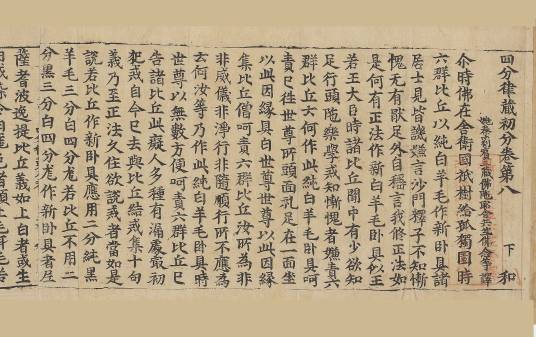 四分律藏初分卷第八 下 和
姚秦罽賓三藏佛陁耶舍共竺佛念等譯
尒時佛在舍衛國祇樹給孤獨園時
六群比丘以純白羊毛作新卧具諸
居士見皆譏嫌言沙門釋子不知慚
愧无有猒足外自稱言我修正法如
是何有正法作新白羊毛卧具似王
若王大臣時諸比丘聞中有少欲知
足行頭陁樂學戒知慚愧者嫌責六
群比丘云何作此純白羊毛卧具呵
責已往世尊所頭面礼足在一面坐
以此因縁具白世尊世尊以此因縁
集比丘僧呵責六群比丘汝所為非
非威儀非淨行非隨順行所不應為
云何汝等乃作此純白羊毛卧具時
世尊以無數方便呵責六群比丘已
告諸比丘此癡人多種有漏處最初
犯戒自今已去與比丘結戒集十句
義乃至正法久住欲說戒者當如是
說若比丘作新卧具應用二分純黑
羊毛三分白四分尨若比丘不用二
分黑三分白四分尨作新卧具者尼
薩耆波逸提比丘義如上白者或生